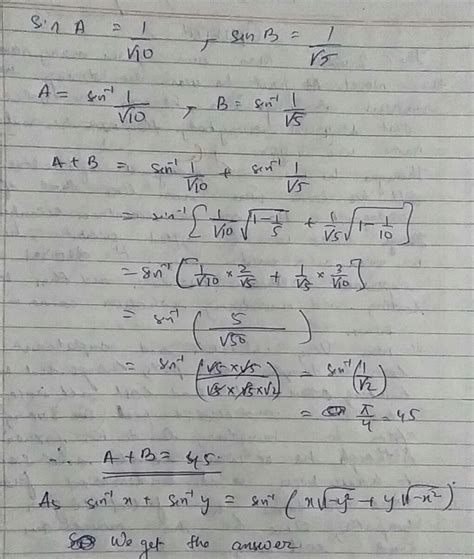 sin A = 1/√10 , sin B = 1/√5
A = sin⁻¹ 1/√10 , B = sin⁻¹ 1/√5
A + B = sin⁻¹ 1/√10 + sin⁻¹ 1/√5
= sin⁻¹ [ 1/√10 √(1-1/5) + 1/√5 √(1-1/10) ]
= sin⁻¹ [ 1/√10 × 2/√5 + 1/√5 × 3/√10 ]
= sin⁻¹ ( 5/√50 )
= sin⁻¹ ( (√5 × √5)/(√5 × √5 × √2) ) = sin⁻¹ (1/√2)
= π/4 = 45
∴ A + B = 45.
As sin⁻¹ x + sin⁻¹ y = sin⁻¹ ( x√-y² + y√-x² )
We get the answer